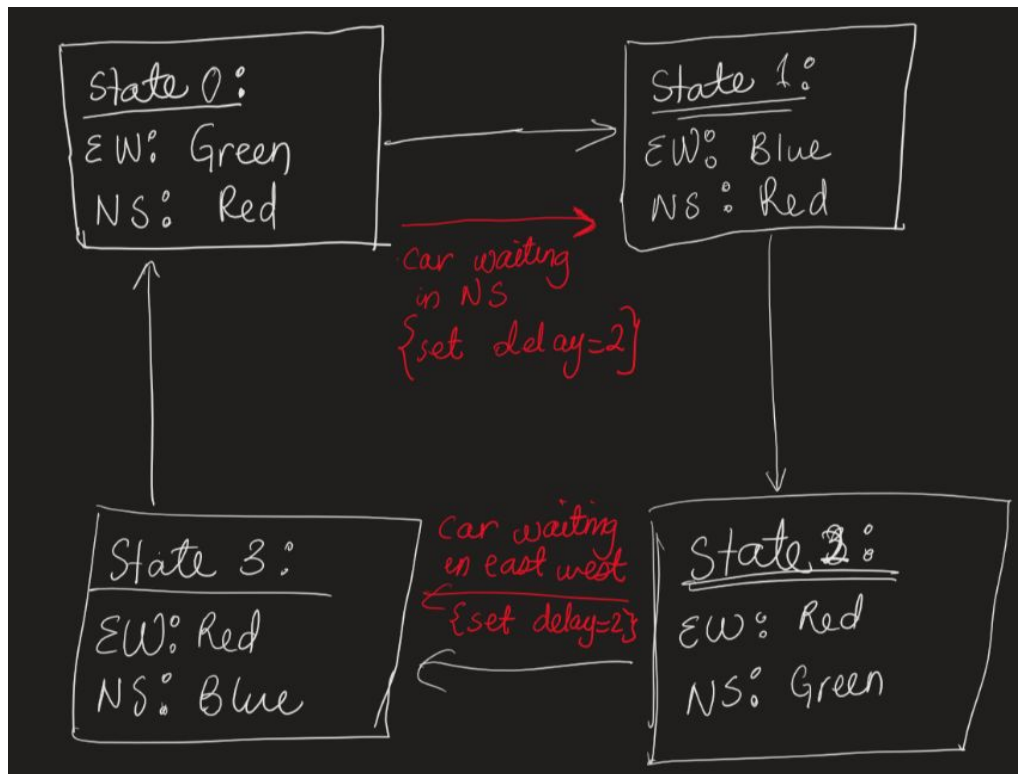 State 0:
EW: Green
NS: Red
State 1:
EW: Blue
NS: Red
car waiting
in NS
{set delay=2}
State 3:
EW: Red
NS: Blue
car waiting
en east west
{set delay=2}
State
EW: Red
NS: Green